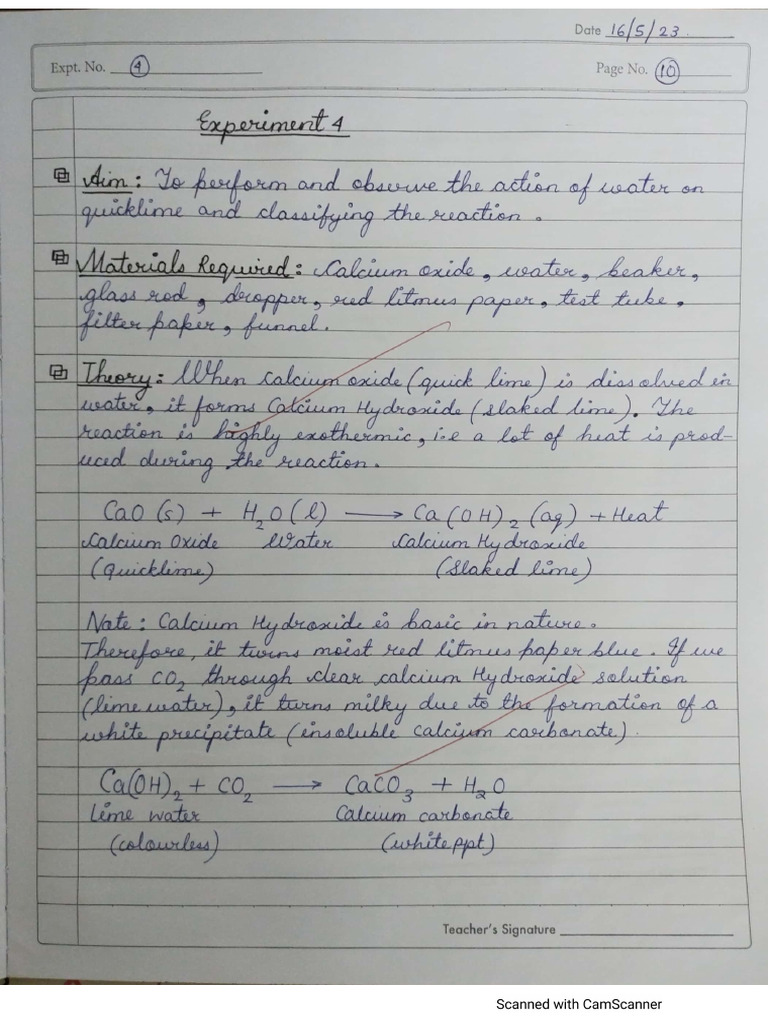 Date 16/5/23
Expt. No. 4
Page No. 10
Experiment 4
Aim : To perform and observe the action of water on
quicklime and classifying the reaction .
Materials Required : Calcium oxide, water, beaker,
glass rod, dropper, red litmus paper, test tube,
filter paper, funnel.
Theory : When calcium oxide (quick lime) is dissolved in
water, it forms Calcium Hydroxide (slaked lime). The
reaction is highly exothermic, i.e a lot of heat is prod-
uced during the reaction.
CaO (s) + H₂O (l) ⟶ Ca (OH)₂ (aq) + Heat
Calcium Oxide Water Calcium Hydroxide
(Quicklime) (Slaked lime)
Note : Calcium Hydroxide is basic in nature.
Therefore, it turns moist red litmus paper blue. If we
pass CO₂ through clear calcium Hydroxide solution
(lime water), it turns milky due to the formation of a
white precipitate (insoluble calcium carbonate).
Ca(OH)₂ + CO₂ ⟶ CaCO₃ + H₂O
Lime water Calcium carbonate
(colourless) (white ppt)
Teacher's Signature
Scanned with CamScanner